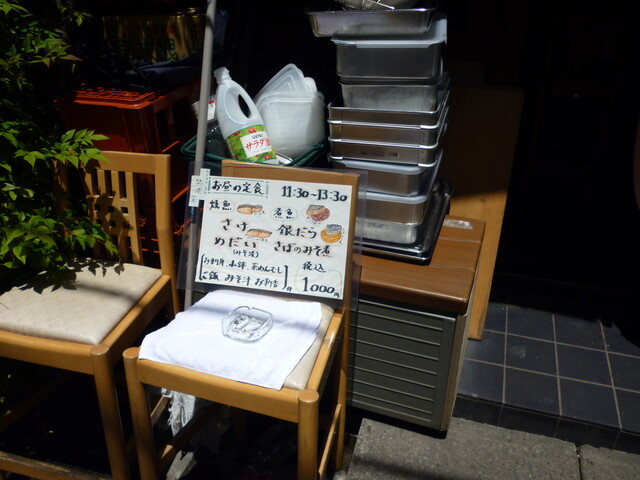 お昼の定食 11:30~13:30
焼魚 煮魚
さけ 銀だら
めだい さばのみそ煮
(みそ漬)
お刺身 小鉢 茶わんむし 税込
ご飯 みそ汁 お新香 1000円
サラダ油